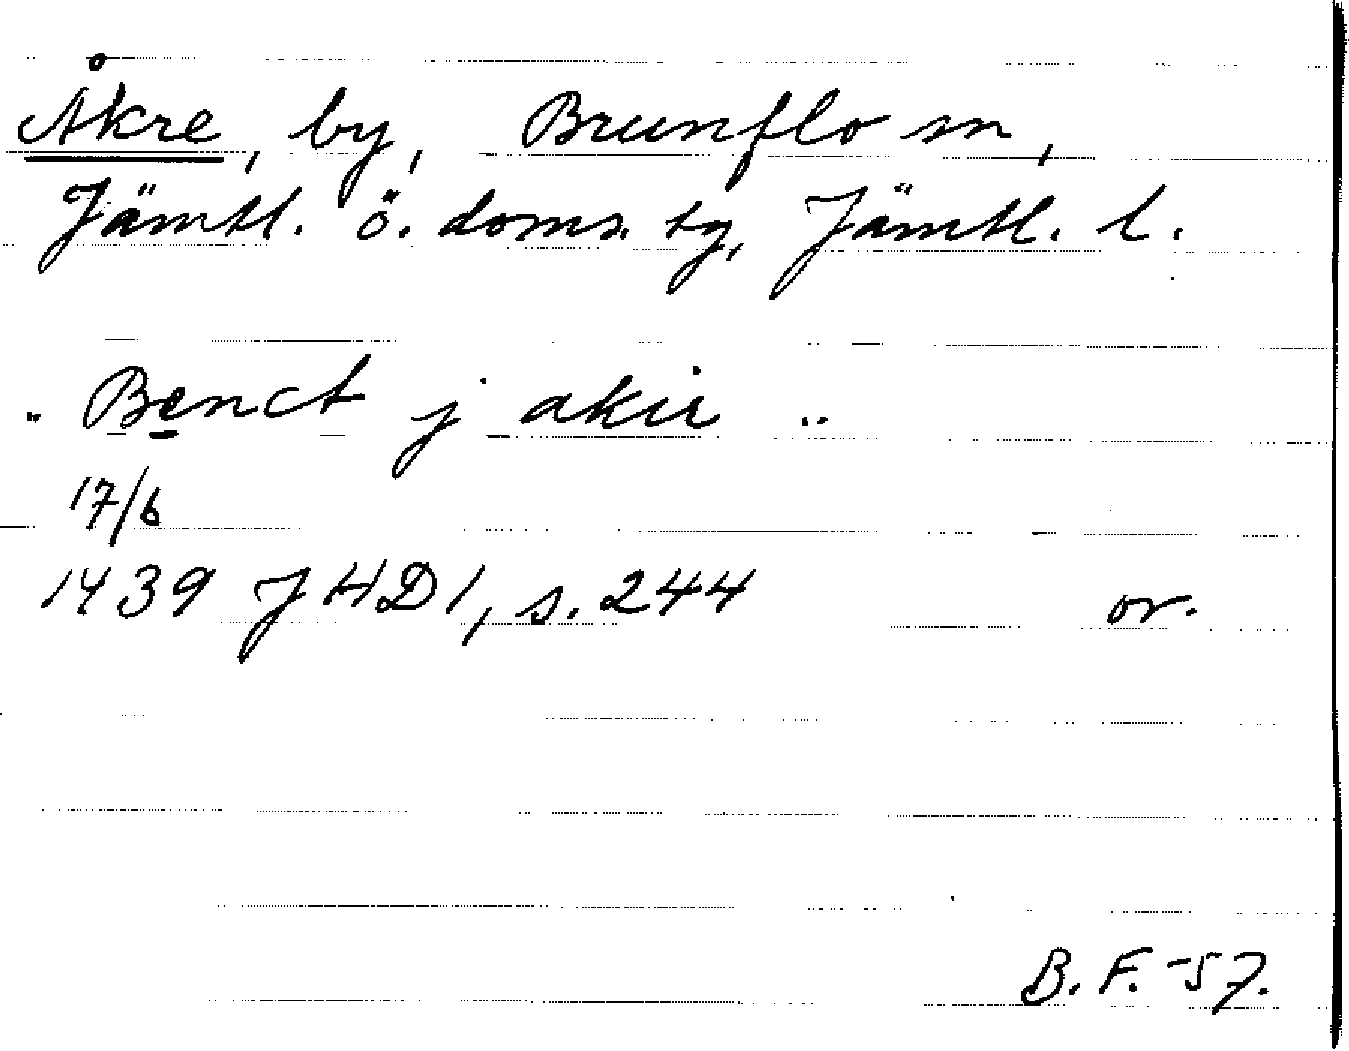 Åkre, by, Brunflo sn,
Jämtl. ö. doms. tg, Jämtl. l.
.. Benct j akir ..
17/6
1439 JHD1, s. 244 or.
B. F. -57.